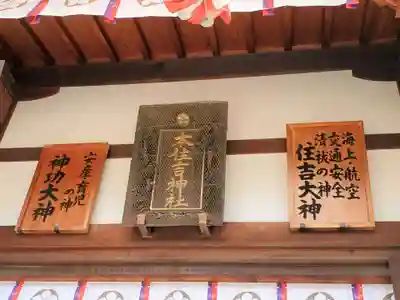 海上・航空
交通安全
清祓の神
住吉大神
本住吉神社
安産育児
の神
神功大神